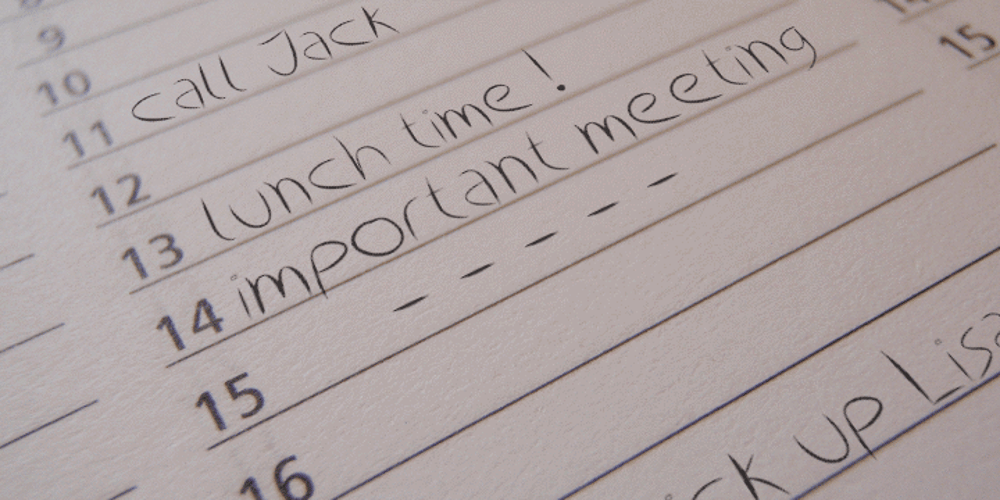 9
10
11 call Jack
12
13 lunch time !
14 important meeting
15 - - - - -
16
up Lisa
15